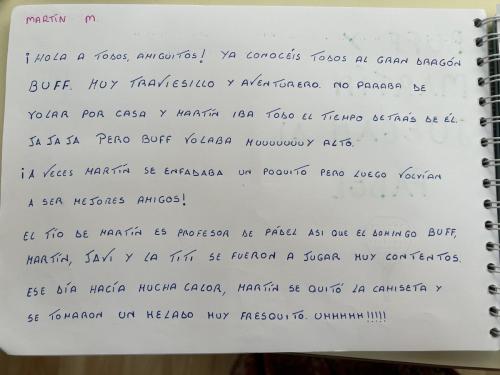 MARTÍN M.
¡HOLA A TODOS, AMIGUITOS! YA CONOCÉIS TODOS AL GRAN DRAGÓN
BUFF. MUY TRAVIESILLO Y AVENTURERO. NO PARABA DE
VOLAR POR CASA Y MARTÍN IBA TODO EL TIEMPO DETRÁS DE ÉL.
JA JA JA PERO BUFF VOLABA MUUUUUUUY ALTO.
¡A VECES MARTÍN SE ENFADABA UN POQUITO PERO LUEGO VOLVÍAN
A SER MEJORES AMIGOS!
EL TÍO DE MARTÍN ES PROFESOR DE PÁDEL ASI QUE EL DOMINGO BUFF,
MARTÍN, JAVI Y LA TITI SE FUERON A JUGAR MUY CONTENTOS.
ESE DÍA HACÍA MUCHA CALOR, MARTÍN SE QUITÓ LA CAMISETA Y
SE TOMARON UN HELADO MUY FRESQUITO. UHHHHH!!!!!